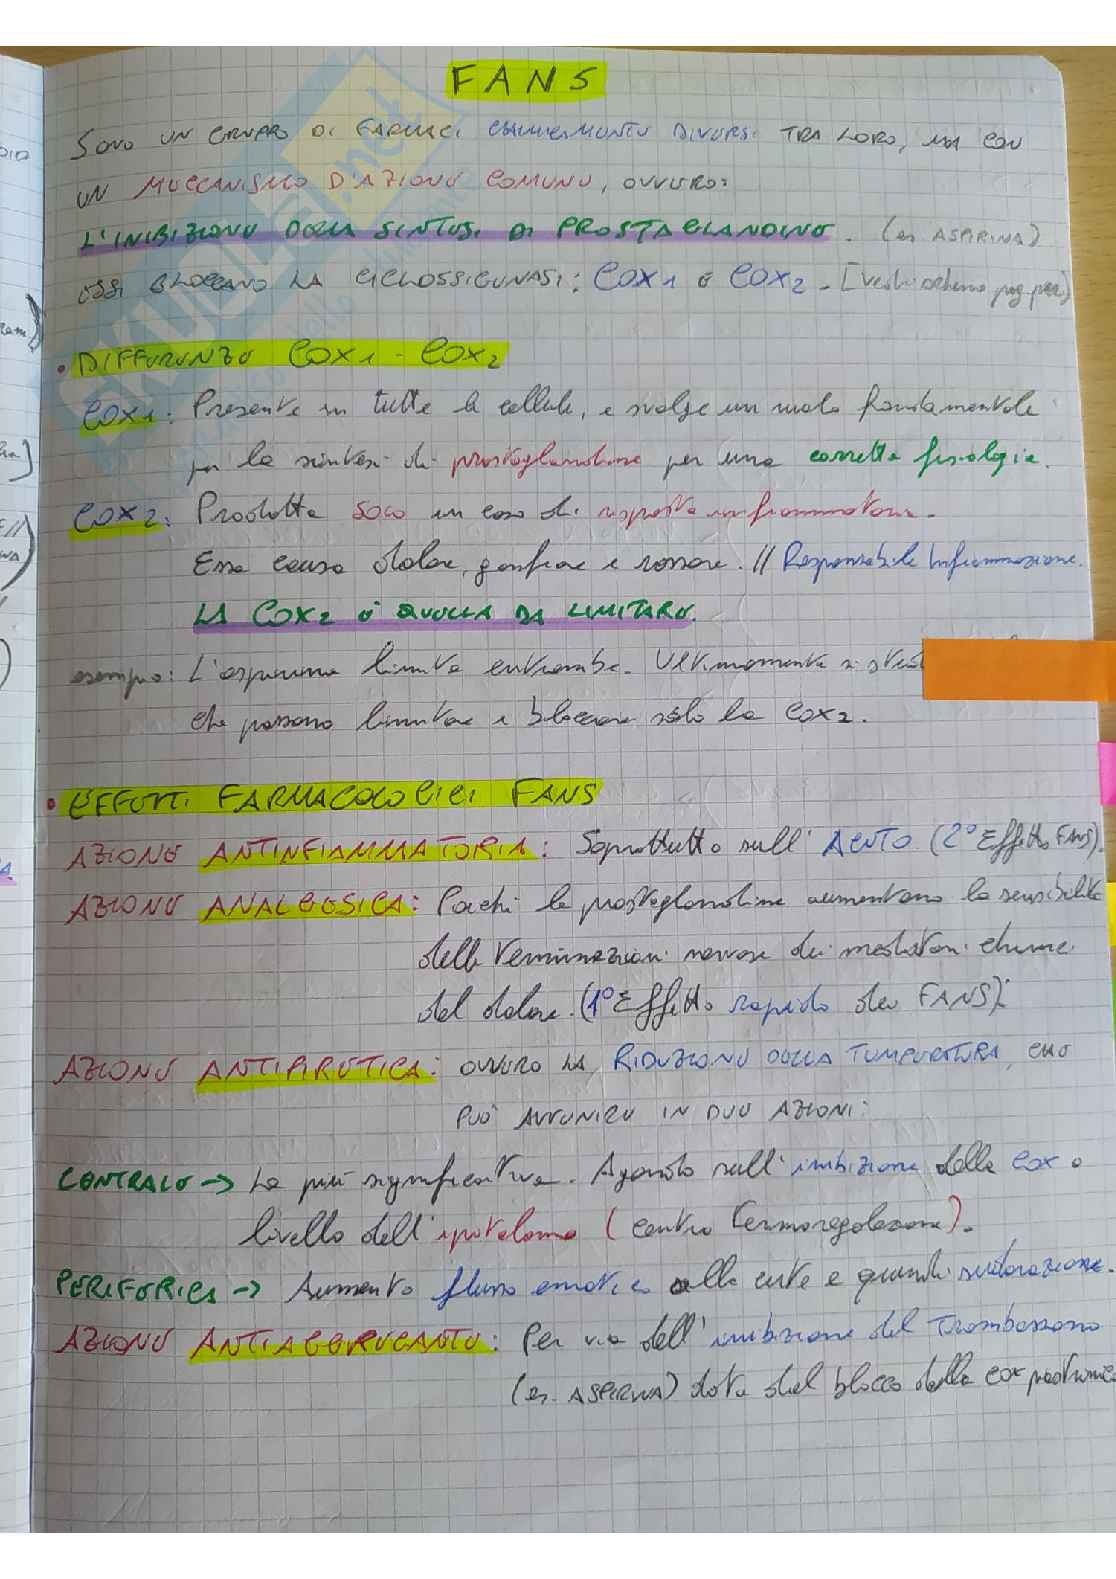 FANS
SONO UN GRUPPO DI FARMACI CHIMICAMENTE DIVERSI TRA LORO, MA CON
UN MECCANISMO D'AZIONE COMUNE, OVVERO:
L'INIBIZIONE DELLA SINTESI DI PROSTAGLANDINE. (es. ASPIRINA)
ESSI BLOCCANO LA CICLOSSIGENASI: COX1 E COX2. [Vedi schema pag. prec]
• DIFFERENZE COX1 - COX2
COX1: Presente in tutte le cellule, e svolge un ruolo fondamentale
per la sintesi di prostaglandine per una corretta fisiologia.
COX2: Prodotta SOLO in caso di risposta infiammatoria.
Essa causa dolore, gonfiore e rossore. // Responsabile Infiammazione.
LA COX2 È QUELLA DA LIMITARE.
esempio: L'aspirina limita entrambe. Ultimamente si
che possono limitare e bloccare solo la COX2.
• EFFETTI FARMACOLOGICI FANS
AZIONE ANTINFIAMMATORIA: Soprattutto sull' ACUTO (2° Effetto FANS).
AZIONE ANALGESICA: Poichè le prostaglandine aumentano la sensibilità
delle terminazioni nervose dei mediatori chimici
del dolore. (1° Effetto rapido dei FANS).
AZIONE ANTIPIRETICA: OVVERO LA RIDUZIONE DELLA TEMPERATURA, CHE
PUÒ AVVENIRE IN DUE AZIONI:
CENTRALE → La più significativa. Agendo sull'inibizione delle cox a
livello dell'ipotalamo (centro termoregolazione).
PERIFERICA → Aumento flusso ematico alla cute e quindi sudorazione.
AZIONE ANTIAGGREGANTE: Per via dell'inibizione del Trombossano
(es. ASPIRINA) data dal blocco della cox piastrinica